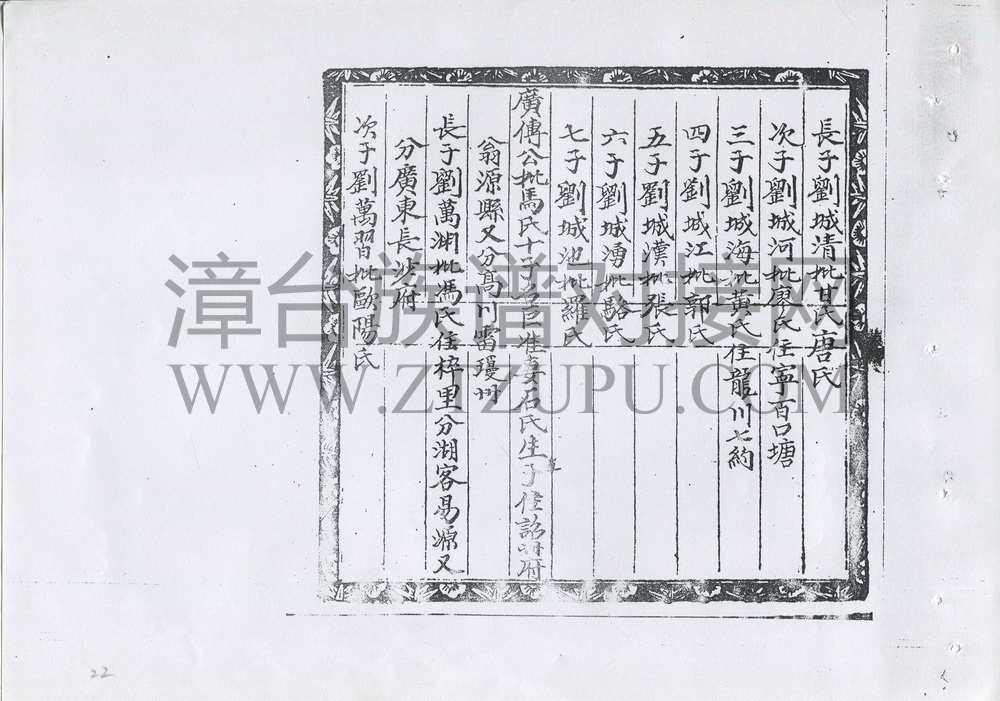 長子劉城清妣甘氏唐氏
次子劉城河妣康氏住寧百口塘
三子劉城海妣黃氏住龍川七約
四子劉城江妣郭氏
五子劉城漢妣張氏
六子劉城湧妣駱氏
七子劉城池妣羅氏
廣傳公妣馬氏十子 淮妻石氏生五子住詔州府
翁源縣又分高川雷瓊州
長子劉萬渊妣馮氏住梓里分湖客易源又
分廣東長沙府
次子劉萬習妣歐陽氏
漳台族谱对接网
WWW.ZTZUPU.COM
22